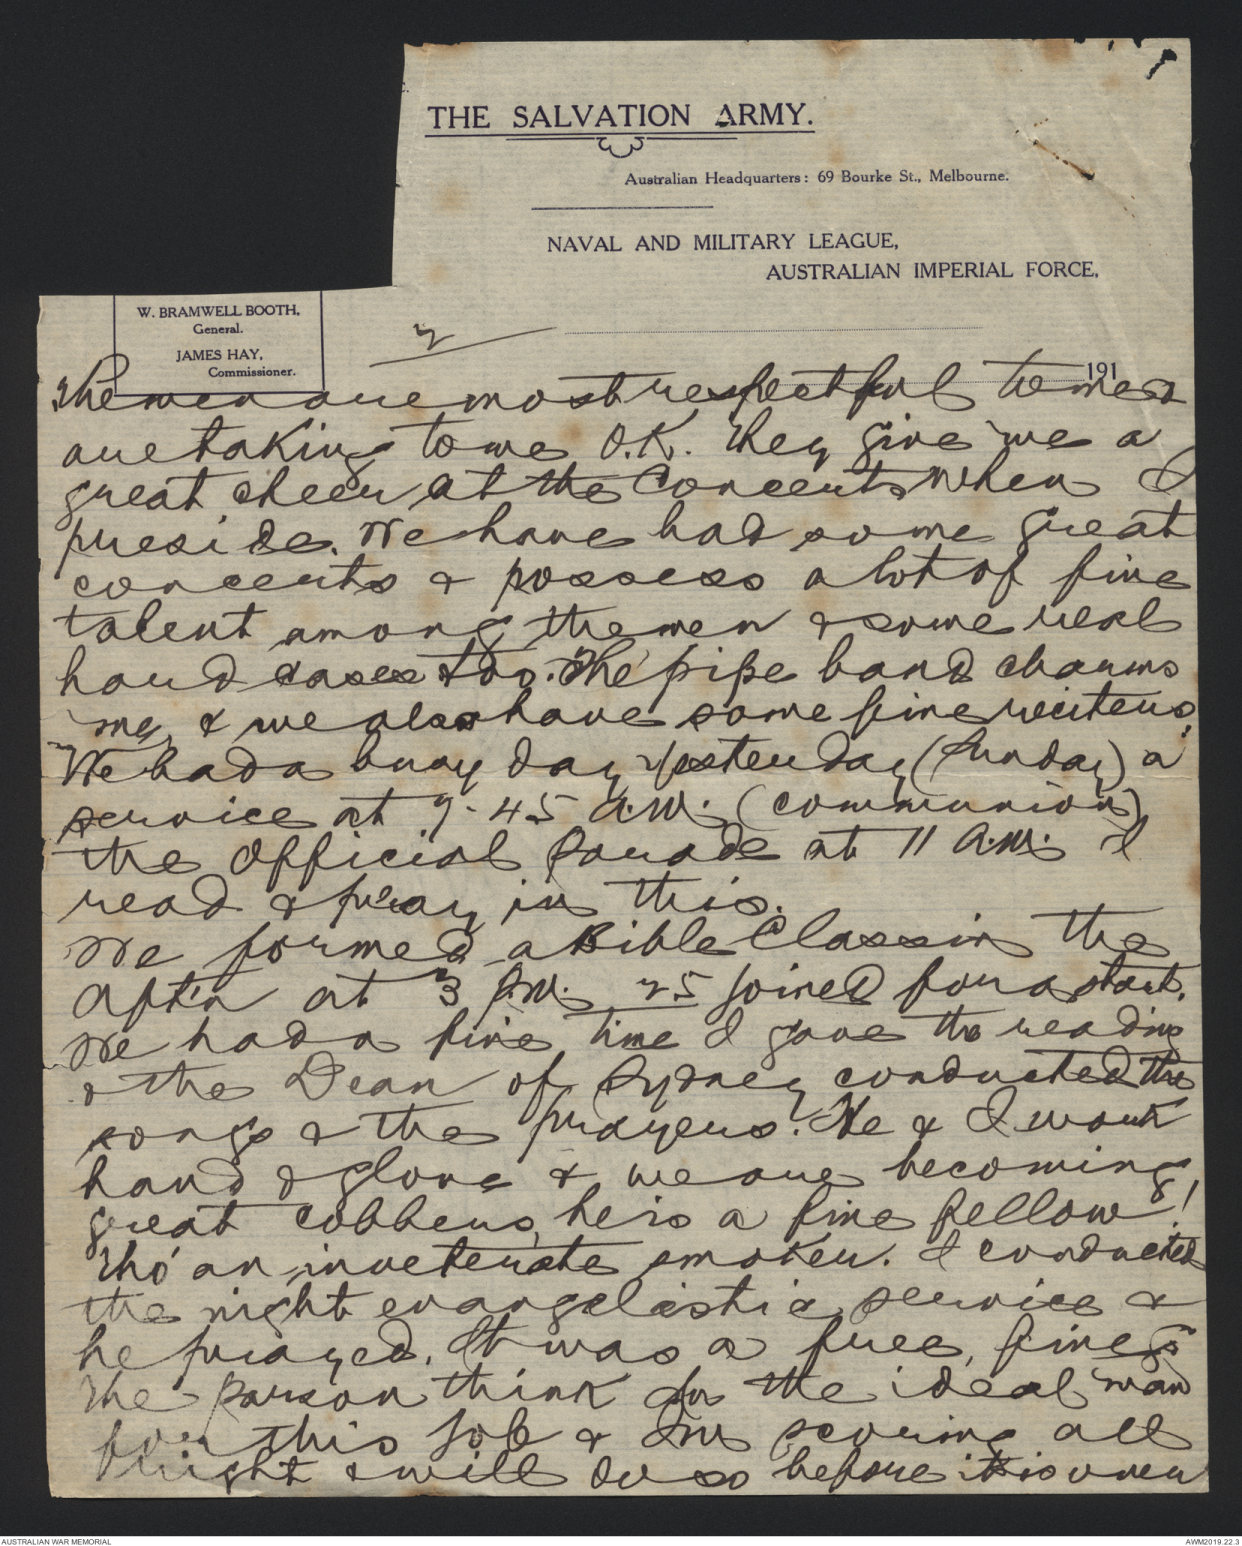 THE SALVATION ARMY.
Australian Headquarters: 69 Bourke St., Melbourne.
NAVAL AND MILITARY LEAGUE,
AUSTRALIAN IMPERIAL FORCE,
W. BRAMWELL BOOTH,
General.
JAMES HAY,
Commissioner.
2
191
The men are most respectful to me &
are taking to me O.K. They give me a
great cheer at the Concerts when I
preside. We have had some great
concerts & possess a lot of fine
talent among the men & some real
hard cases too. The pipe band charms
me, & we also have some fine reciters.
We had a busy day yesterday (Sunday) a
service at 7-45 a.m. (communion)
the Official Parade at 11 A.M. I
read & pray in this.
We formed a Bible Class in the
Aft'n at 3 P.M. 25 joined for a start.
We had a fine time I gave the reading
& the Dean of Sydney conducted the
songs & the prayers. He & I work
hand & glove & we are becoming
great cobbers, he is a fine fellow!
Tho' an inveterate smoker. I conducted
the night evangelistic service &
he prayed. It was a free, fine
The Parson think I'm the ideal man
for this job & I'm scoring all
right & will do so before it is over